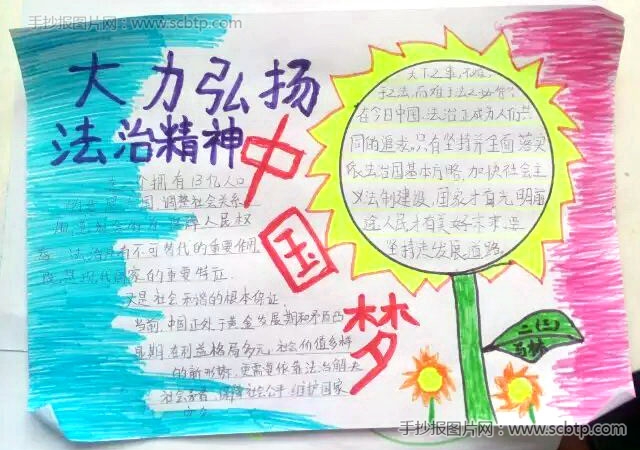 手抄报图片网:www.scbtp.com
大力弘扬
法治精神
中
国
梦
个拥有13亿人口
国,调整社会关系
障人民权
法治具有不可替代的重要作用
是现代国家的重要特征
又是社会和谐的根本保证
当前,中国正处于黄金发展期和矛盾凸
显期,在利益格局多元,社会价值多样
的新形势,更需要依靠法治解决
社会矛盾,保障社会公平,维护国家
天下之事,不难
于立法,而难于法之必行
在今日中国,法治正成为人们共
同的追求,只有坚持并全面落实
依法治国基本方略,加快社会主
义法制建设,国家才有光明前
途,人民才有美好未来,
坚持走发展道路
二(三)
手抄报图片网:www.scbtp.com